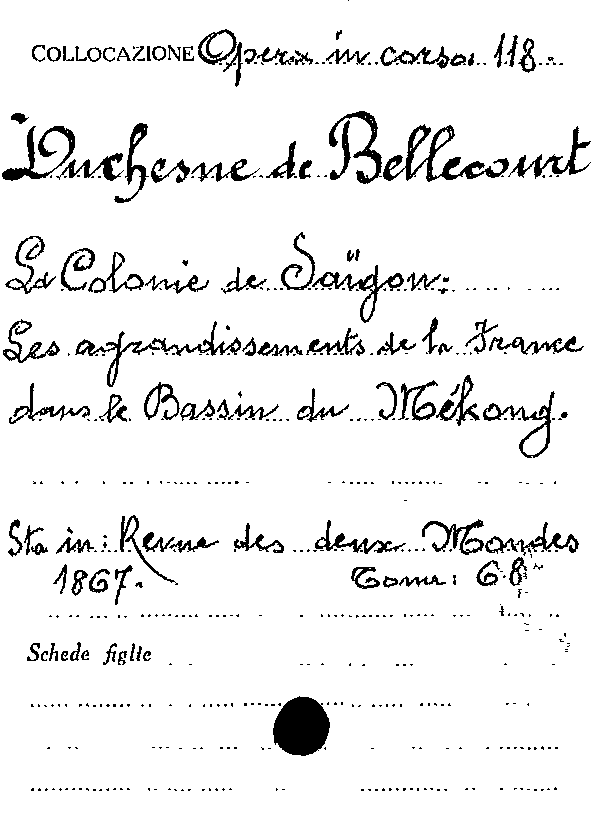 COLLOCAZIONE Opera in corso. 118.
Duchesne de Bellecourt
La Colonie de Saïgon:
Les agrandissements de la France
dans le Bassin du Mékong.
Sta in: Revue des deux Mondes
1867. Tome: 68
Schede figlie